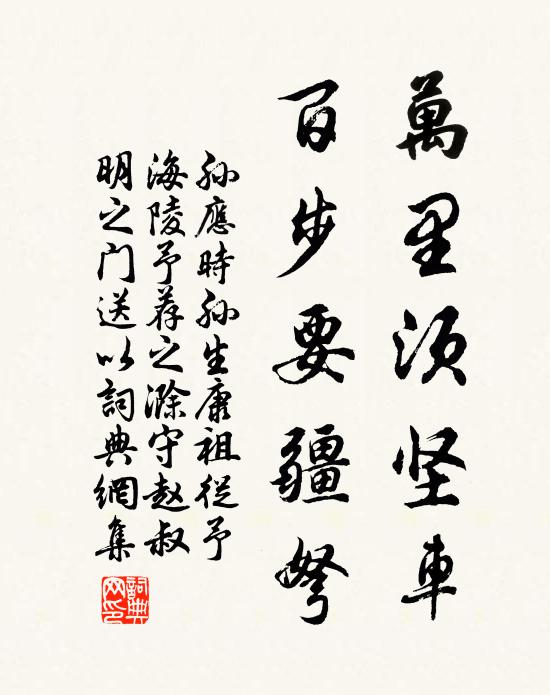 萬里须坚車
百步要疆弩
孙應時孙生康祖從予
海陵予荐之滁守赵叔
明之门送以詞典網集
詞典网印